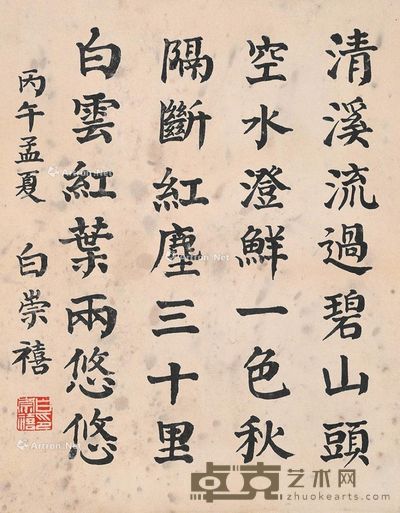 清溪流過碧山頭
空水澄鮮一色秋
隔斷紅塵三十里
白雲紅葉兩悠悠
丙午孟夏 白崇禧
白崇禧印
Artron.Net
卓克艺术网
zhuokearts.com